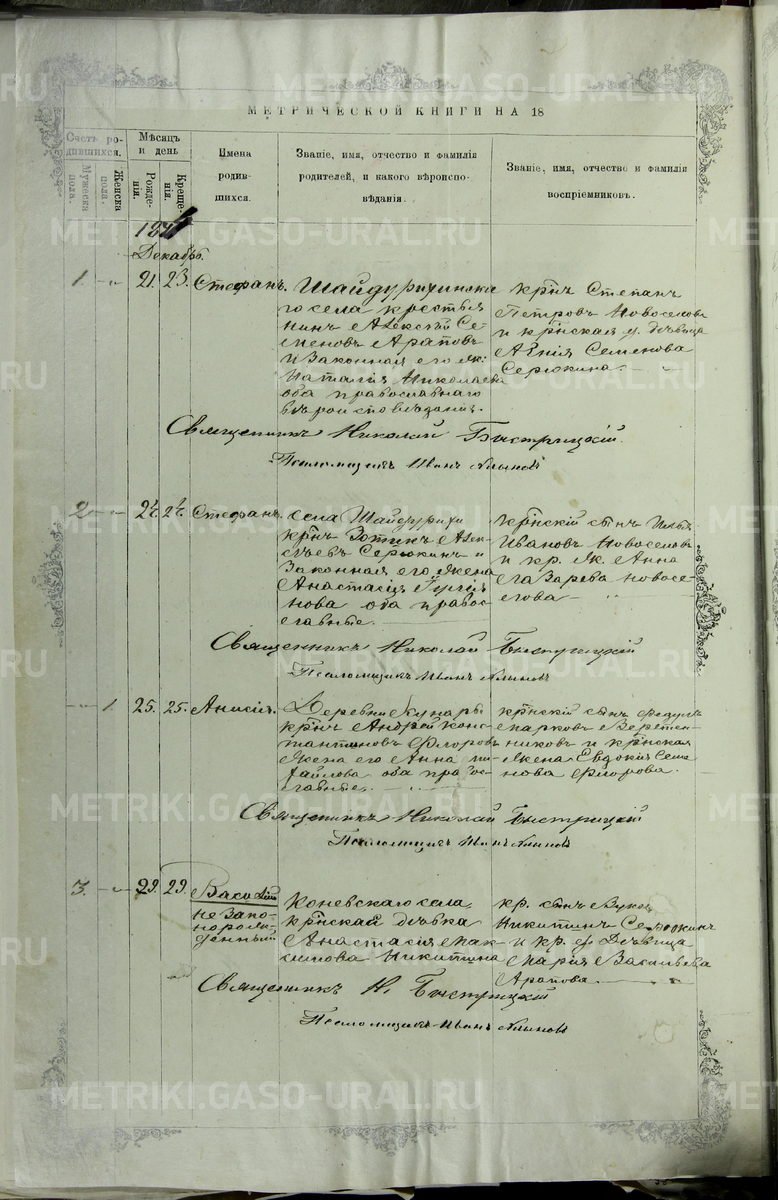 МЕТРИЧЕСКОЙ КНИГИ НА 18
Счетъ родившихся.
Мужеска пола.
Женска пола.
Мѣсяцъ и день
Рожденія.
Крещенія.
Имена родившихся.
Званіе, имя, отчество и фамилія родителей, и какого вѣроисповѣданія.
Званіе, имя, отчество и фамилія воспріемниковъ.
Декабрь.
1 21. 23. Стефанъ.
Шайдурихинска
го села крестья
нинъ Алексѣй Се
меновъ Араповъ
и законная его ж:
Наталія Николаева
оба православнаго
вѣроисповѣданія.
крн҃ъ Степанъ
Петровъ Новоселовъ
и кр҃нская д. дѣвица
Агнія Семенова
Серюкина.
Священникъ Николай Быстрицкій.
Псаломщикъ Иванъ
2 24. 24. Стефанъ.
села Шайдурихи
крн҃ъ Зотикъ Алек
сѣевъ Серюкинъ и
законная его жена
Анастасія
нова оба право
славные.
кр҃нскій сынъ Илья
Ивановъ Новоселовъ
и кр. ж. Анна
Лазарева Новосе
лова
Священникъ Николай Быстрицкій
Псаломщикъ Иванъ
1. 25. 25. Анисія.
Деревни Кунары
крн҃ъ Андрей Конс
тантиновъ Флоровъ
жена его Анна Ми
хайлова оба право
славные.
кр҃нскій сынъ
Марковъ Веретен
никовъ и кр҃нская
жена Евдокія Семе
нова Флорова.
Священникъ Николай Быстрицкій
Псаломщикъ Иванъ
3. 29. 29. Василій
незако
норож
денный
Коневскаго села
кр҃нская дѣвка
Анастасія Мак
симова Никитина
кр. сынъ
Никитинъ Серюкинъ
и кр. д. дѣвица
Марія Васильева
Арапова.
Священникъ Н. Быстрицкій
Псаломщикъ Иванъ
METRIKI.GASO-URAL.RU